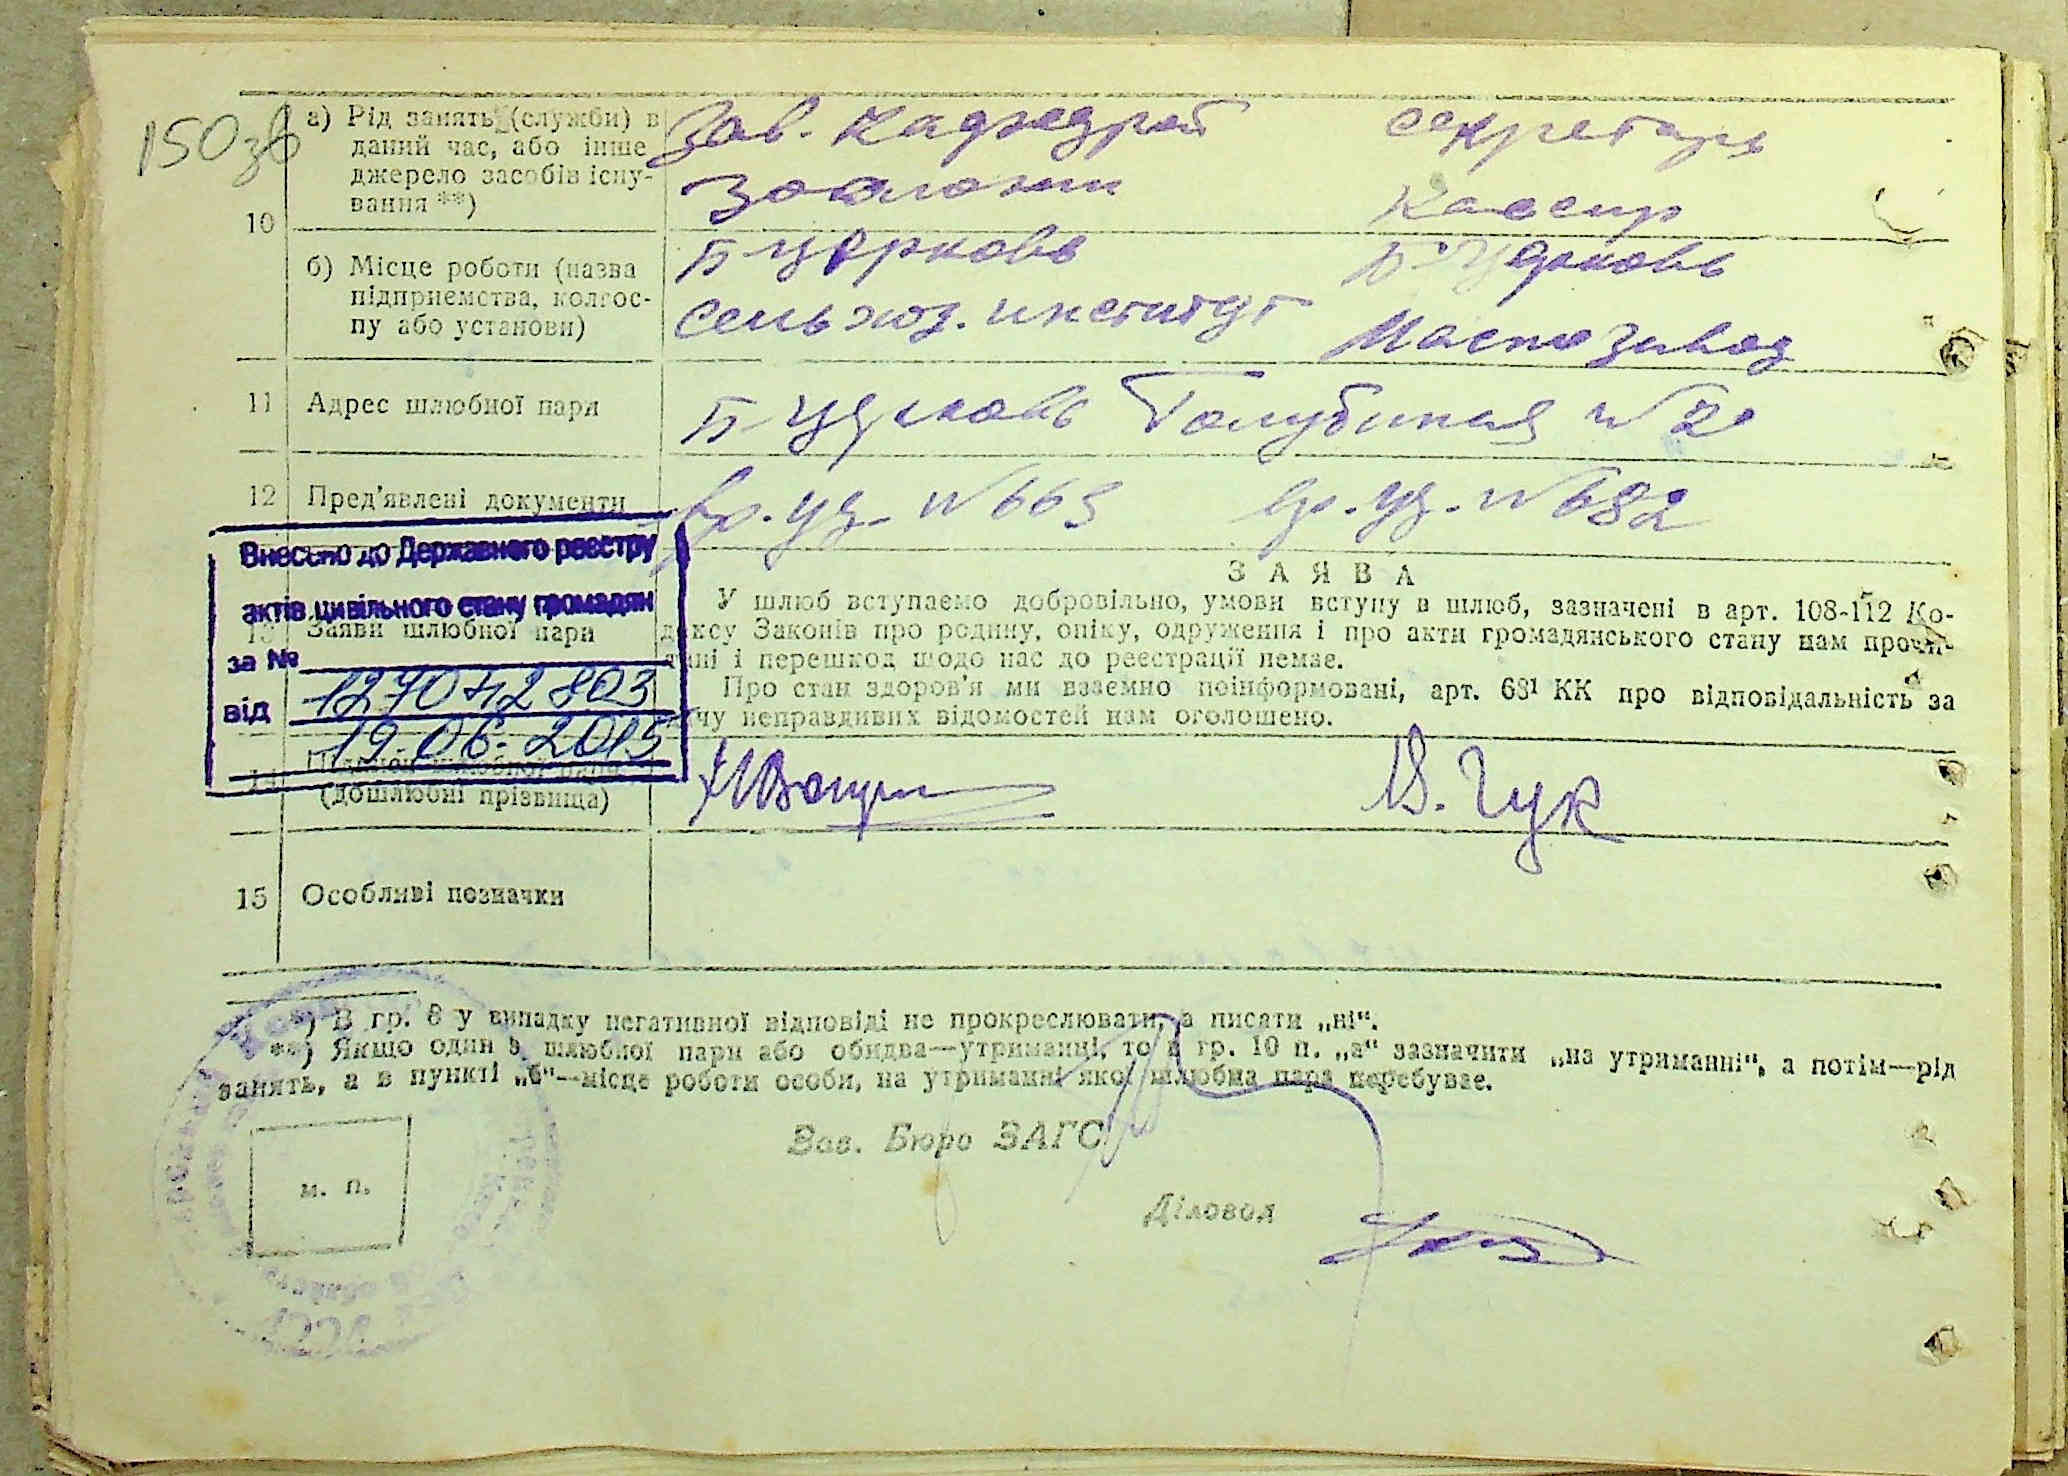 150зв
а) Рід занять (служби) в
даний час, або інше
джерело засобів існу-
вання **)
10
Зав. кафедрой
зоологии
секретарь
кассир
б) Місце роботи (назва
підприємства, колгос-
пу або установи)
Б-Церковь
сельхоз. институт
Б-Церковь
Маслозавод
11 Адрес шлюбної пари
Б-Церковь Голубиная № 2
12 Пред'явлені документи
вр. уд. № 663 вр. уд. № 682
Внесено до Державного реєстру
актів цивільного стану громадян
за № 127042803
від 19.06.2015
13 Заяви шлюбної пари
ЗАЯВА
У шлюб вступаємо добровільно, умови вступу в шлюб, зазначені в арт. 108-112 Ко-
дексу Законів про родину, опіку, одруження і про акти громадянського стану нам прочи-
тані і перешкод щодо нас до реєстрації немає.
Про стан здоров'я ми взаємно поінформовані, арт. 68¹ КК про відповідальність за
дачу неправдивих відомостей нам оголошено.
14 Підписи шлюбної пари
(дошлюбні прізвища)
В. Гук
15 Особливі позначки
*) В гр. 8 у випадку негативної відповіді не прокреслювати, а писати „ні“.
**) Якщо один з шлюбної пари або обидва—утриманці, то в гр. 10 п. „а“ зазначити „на утриманні“, а потім—рід
занять, а в пункті „б“—місце роботи особи, на утриманні якої шлюбна пара перебуває.
Зав. Бюро ЗАГС
м. п.
Діловод